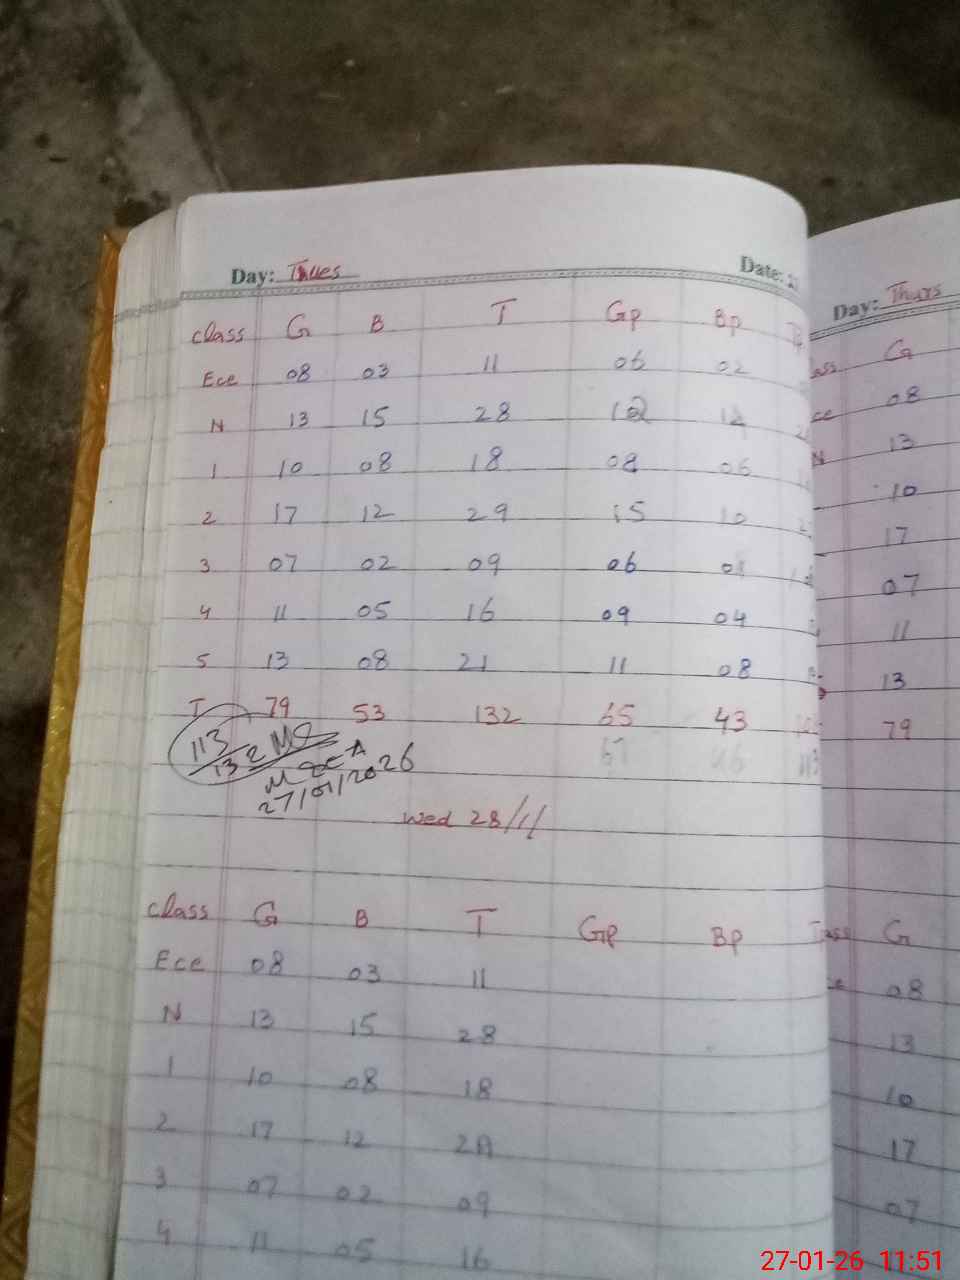 Day: Thues
Date:
class G B T Gp Bp
Ece 08 03 11 06 02
N 13 15 28 12
1 10 08 18 08 06
2 17 12 29 15 10
3 07 02 09 06
4 11 05 16 09 04
5 13 08 21 11 08
T 79 53 132 65 43
113
132
27/01/2026
Wed 28/1/
class G B T Gp Bp
Ece 08 03 11
N 13 15 28
1 10 08 18
2 17 12
3 07 02 09
4 11 05 16
Day: Thurs
G
08
13
10
17
07
11
13
79
G
08
13
10
17
07
27-01-26 11:51